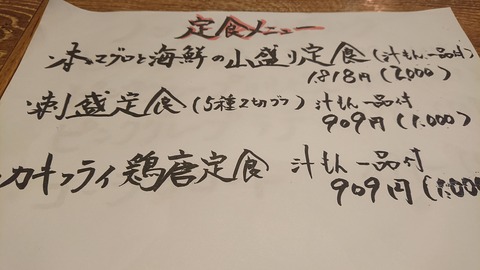 定食メニュー
本マグロと海鮮の山盛り定食(汁もん、一品付)
1,818円(2,000)
刺盛定食(5種2切づつ)汁もん一品付
909円(1,000)
カキフライ鶏唐定食 汁もん一品付
909円(1,000